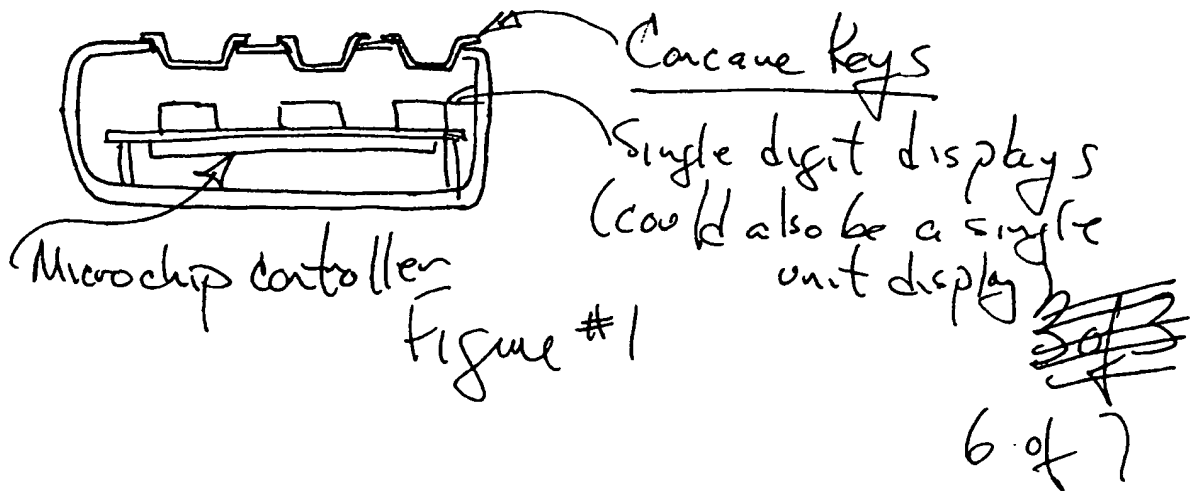 Concave Keys
Single digit displays
(could also be a single
unit display)
Microchip controller
Figure #1
3 of 3
6 of 7